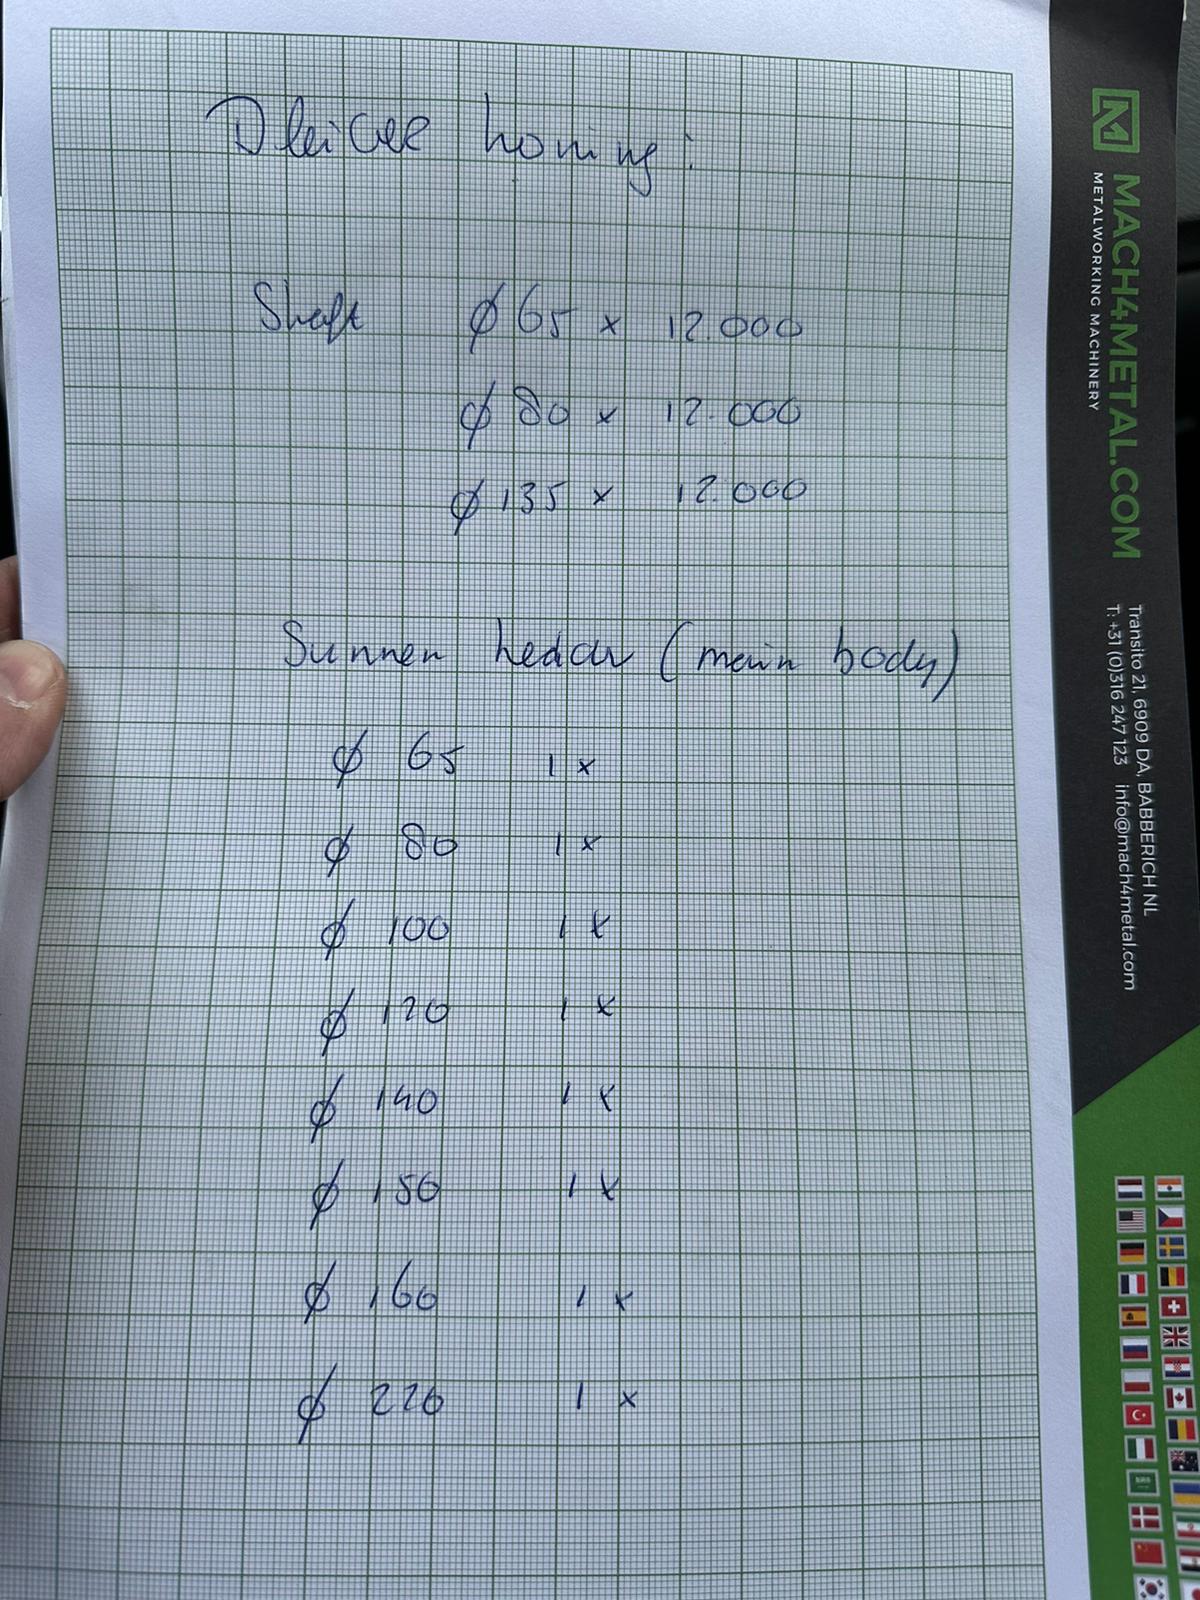 honing:
Shaft ϕ 65 x 12.000
ϕ 80 x 12.000
ϕ 135 x 12.000
Sunnen (main body)
ϕ 65 1 x
ϕ 80 1 x
ϕ 100 1 x
ϕ 120 1 x
ϕ 140 1 x
ϕ 150 1 x
ϕ 160 1 x
ϕ 220 1 x
MACH4METAL.COM
METALWORKING MACHINERY
Transito 21, 6909 DA, BABBERICH NL
T: +31 (0)316 247 123 info@mach4metal.com